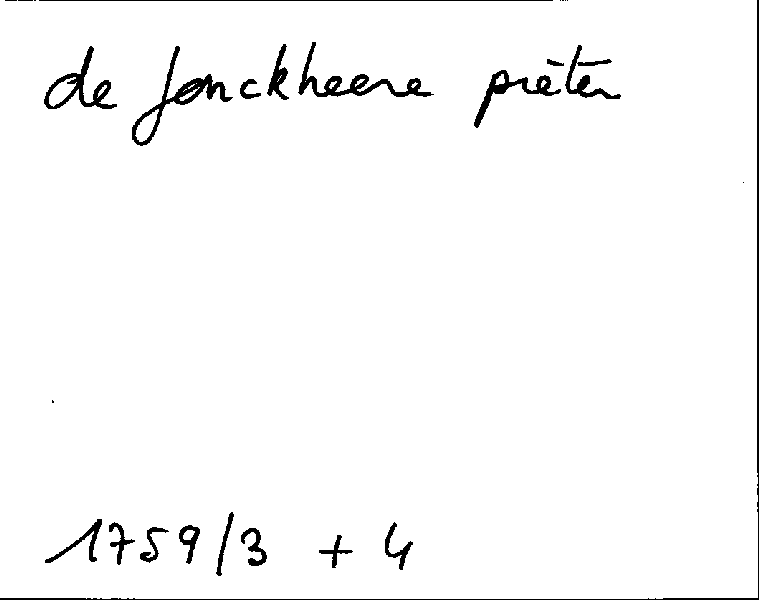 de Jonckheere pieter
1759/3 + 4